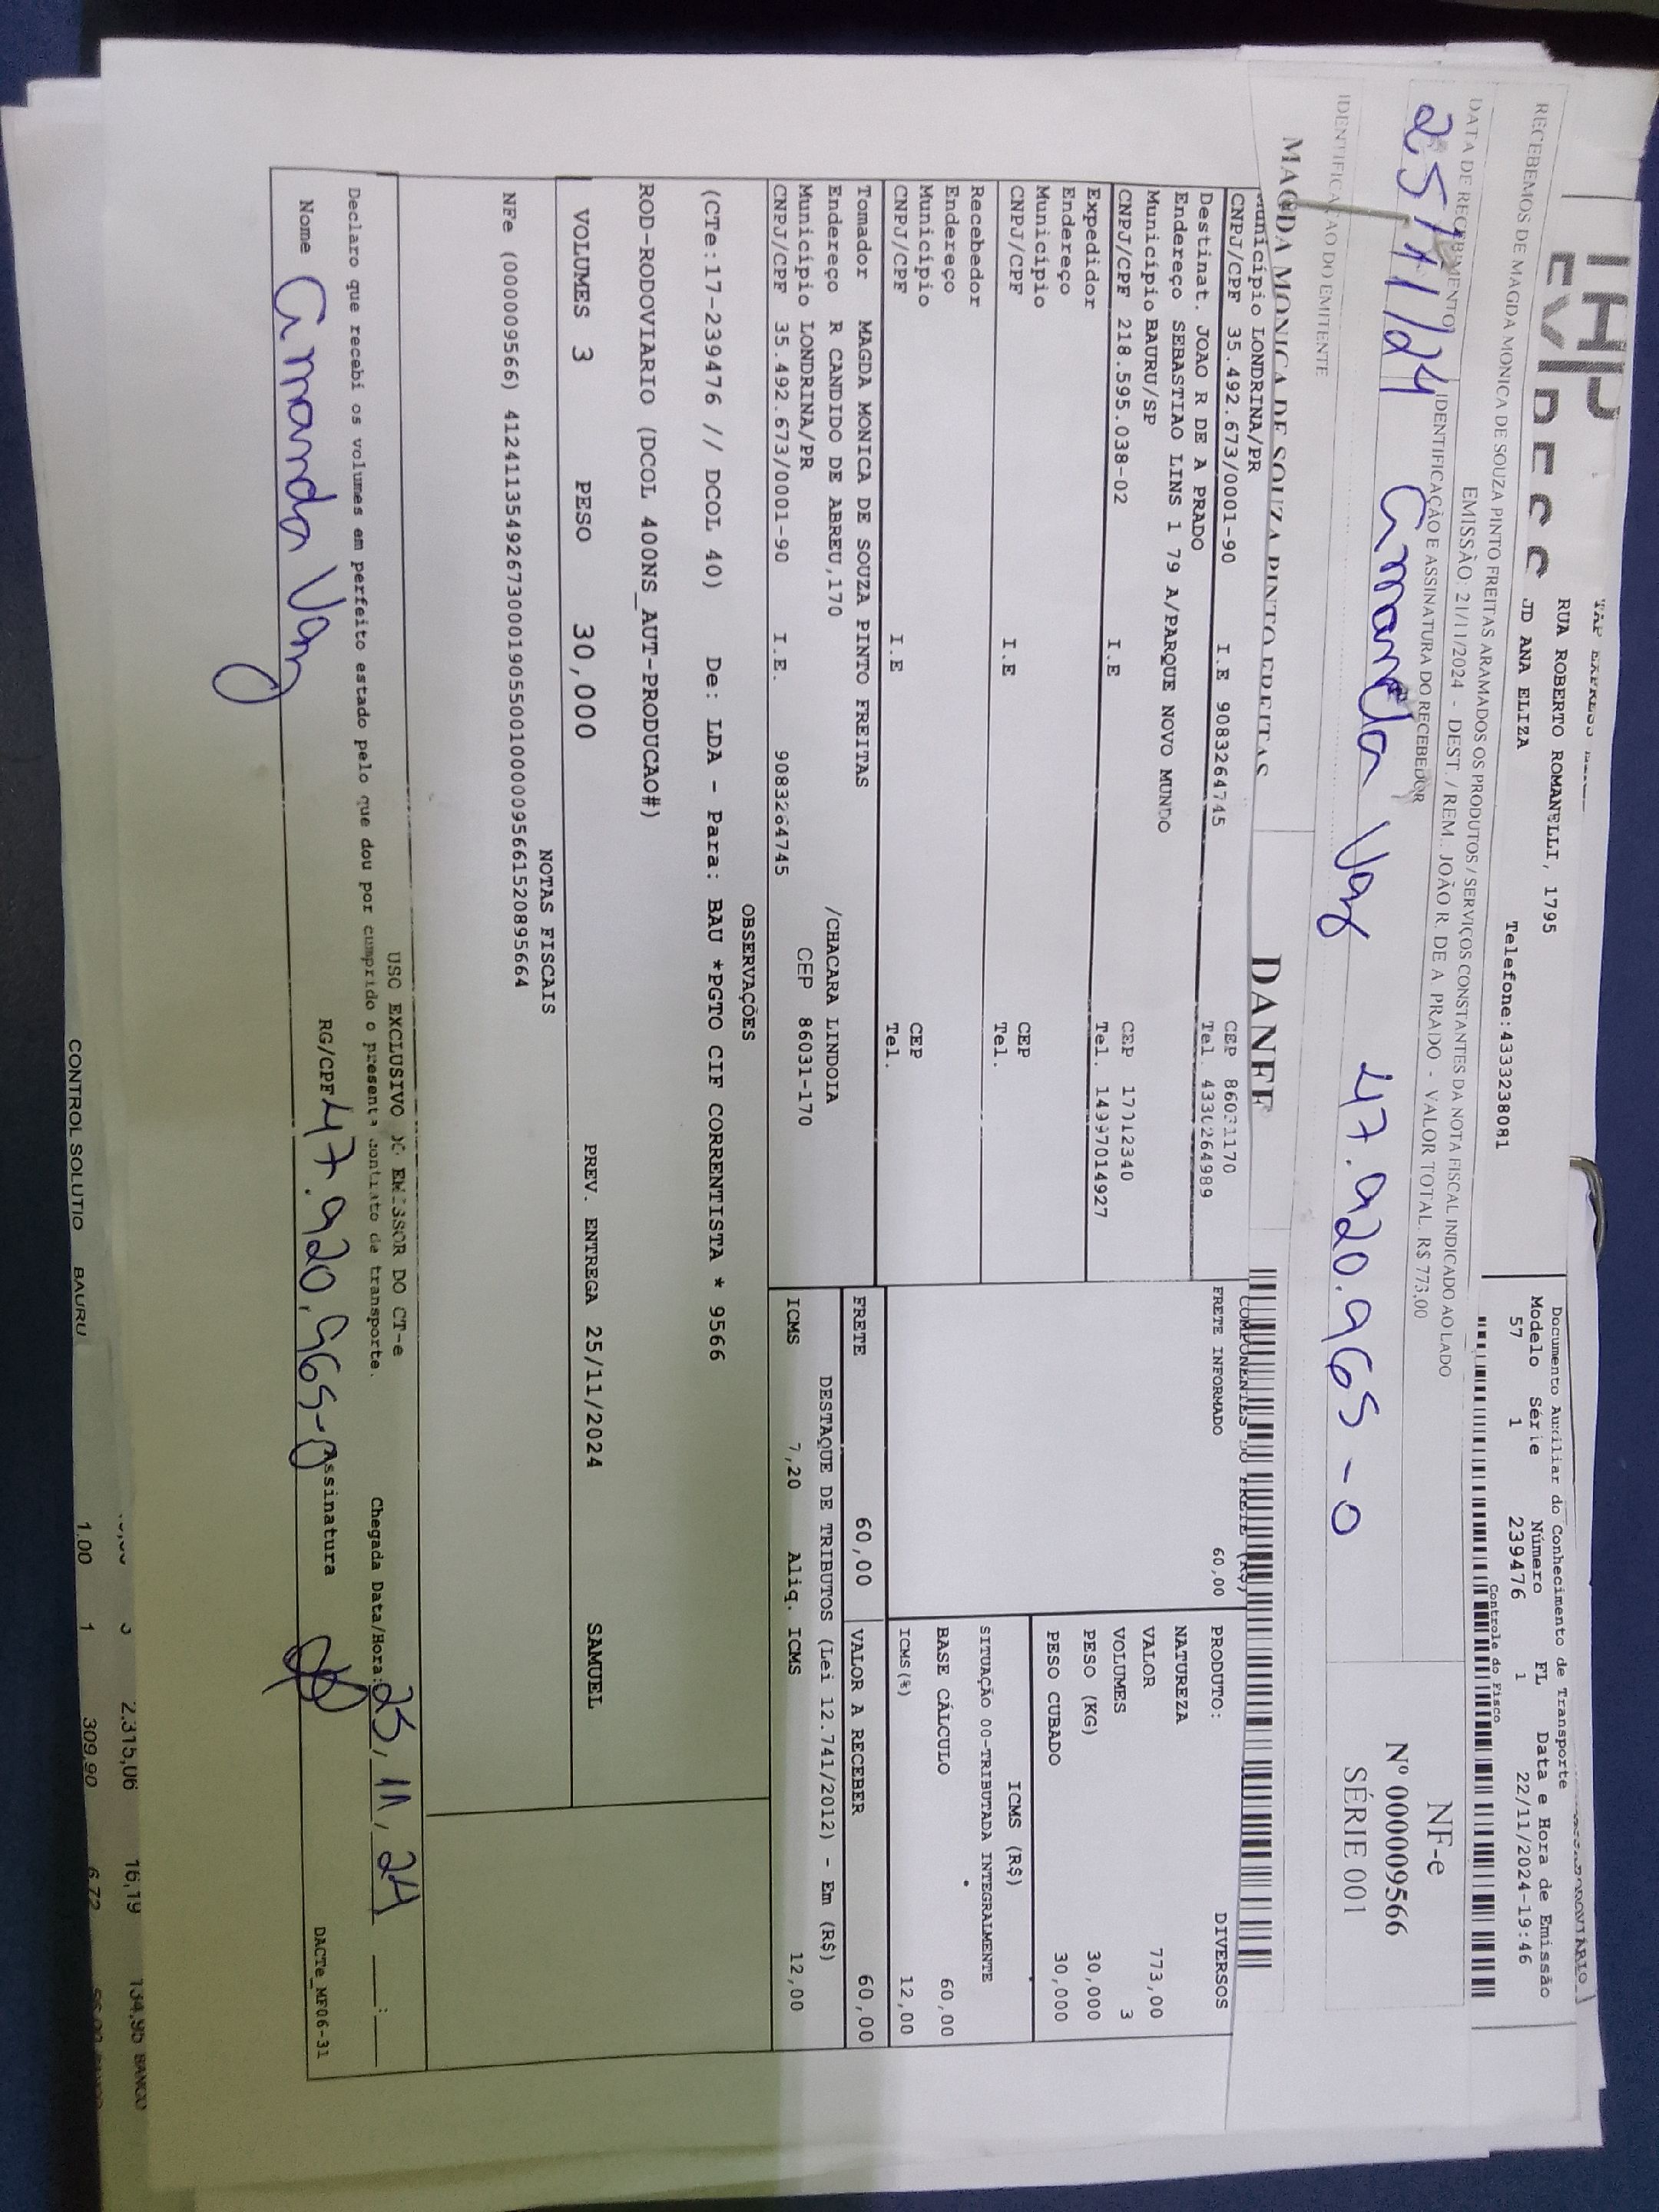 RUA ROBERTO ROMANELLI, 1795
JD ANA ELIZA
Telefone:4333238081
Documento Auxiliar do Conhecimento de Transporte
Modelo Série Número FL Data e Hora de Emissão
57 1 239476 1 22/11/2024-19:46
Controle do Fisco
RECEBEMOS DE MAGDA MONICA DE SOUZA PINTO FREITAS ARAMADOS OS PRODUTOS / SERVIÇOS CONSTANTES DA NOTA FISCAL INDICADO AO LADO
EMISSÃO: 21/11/2024 - DEST. / REM.: JOÃO R. DE A. PRADO - VALOR TOTAL: R$ 773,00
DATA DE RECEBIMENTO IDENTIFICAÇÃO E ASSINATURA DO RECEBEDOR
25/11/24 Amanda Vaz 47.920.965-0
NF-e
Nº 000009566
SÉRIE 001
IDENTIFICAÇÃO DO EMITENTE
MAGDA MONICA DE SOUZA PINTO FREITAS
DANFE
Município LONDRINA/PR CEP 86031170
CNPJ/CPF 35.492.673/0001-90 I.E 9083264745 Tel. 4330264989
Destinat. JOAO R DE A PRADO
Endereço SEBASTIAO LINS 1 79 A/PARQUE NOVO MUNDO
Município BAURU/SP CEP 17012340
CNPJ/CPF 218.595.038-02 I.E Tel. 14997014927
Expedidor
Endereço
Município CEP
CNPJ/CPF I.E Tel.
Recebedor
Endereço
Município CEP
CNPJ/CPF I.E Tel.
Tomador MAGDA MONICA DE SOUZA PINTO FREITAS
Endereço R CANDIDO DE ABREU,170 /CHACARA LINDOIA
Município LONDRINA/PR CEP 86031-170
CNPJ/CPF 35.492.673/0001-90 I.E. 9083264745
COMPONENTES DO FRETE (R$)
FRETE INFORMADO 60,00
PRODUTO: DIVERSOS
NATUREZA
VALOR 773,00
VOLUMES 3
PESO (KG) 30,000
PESO CUBADO 30,000
ICMS (R$)
SITUAÇÃO 00-TRIBUTADA INTEGRALMENTE
BASE CÁLCULO 60,00
ICMS(%) 12,00
FRETE 60,00 VALOR A RECEBER 60,00
DESTAQUE DE TRIBUTOS (Lei 12.741/2012) - Em (R$)
ICMS 7,20 Aliq. ICMS 12,00
OBSERVAÇÕES
(CTe:17-239476 // DCOL 40) De: LDA - Para: BAU *PGTO CIF CORRENTISTA * 9566
ROD-RODOVIARIO (DCOL 400NS_AUT-PRODUCAO#)
VOLUMES 3 PESO 30,000 PREV. ENTREGA 25/11/2024 SAMUEL
NOTAS FISCAIS
NFe (000009566) 41241135492673000190550010000095661520895664
USO EXCLUSIVO DO EMISSOR DO CT-e
Declaro que recebi os volumes em perfeito estado pelo que dou por cumprido o presente contrato de transporte.
Chegada Data/Hora: 25/11/24 __:__
Nome Amanda Vaz RG/CPF 47.920.965-0 Assinatura
DACTe_MF06-31
2.315,06 16,19 134,95 BANCO
CONTROL SOLUTIO BAURU 1.00 1 309,90 6,72